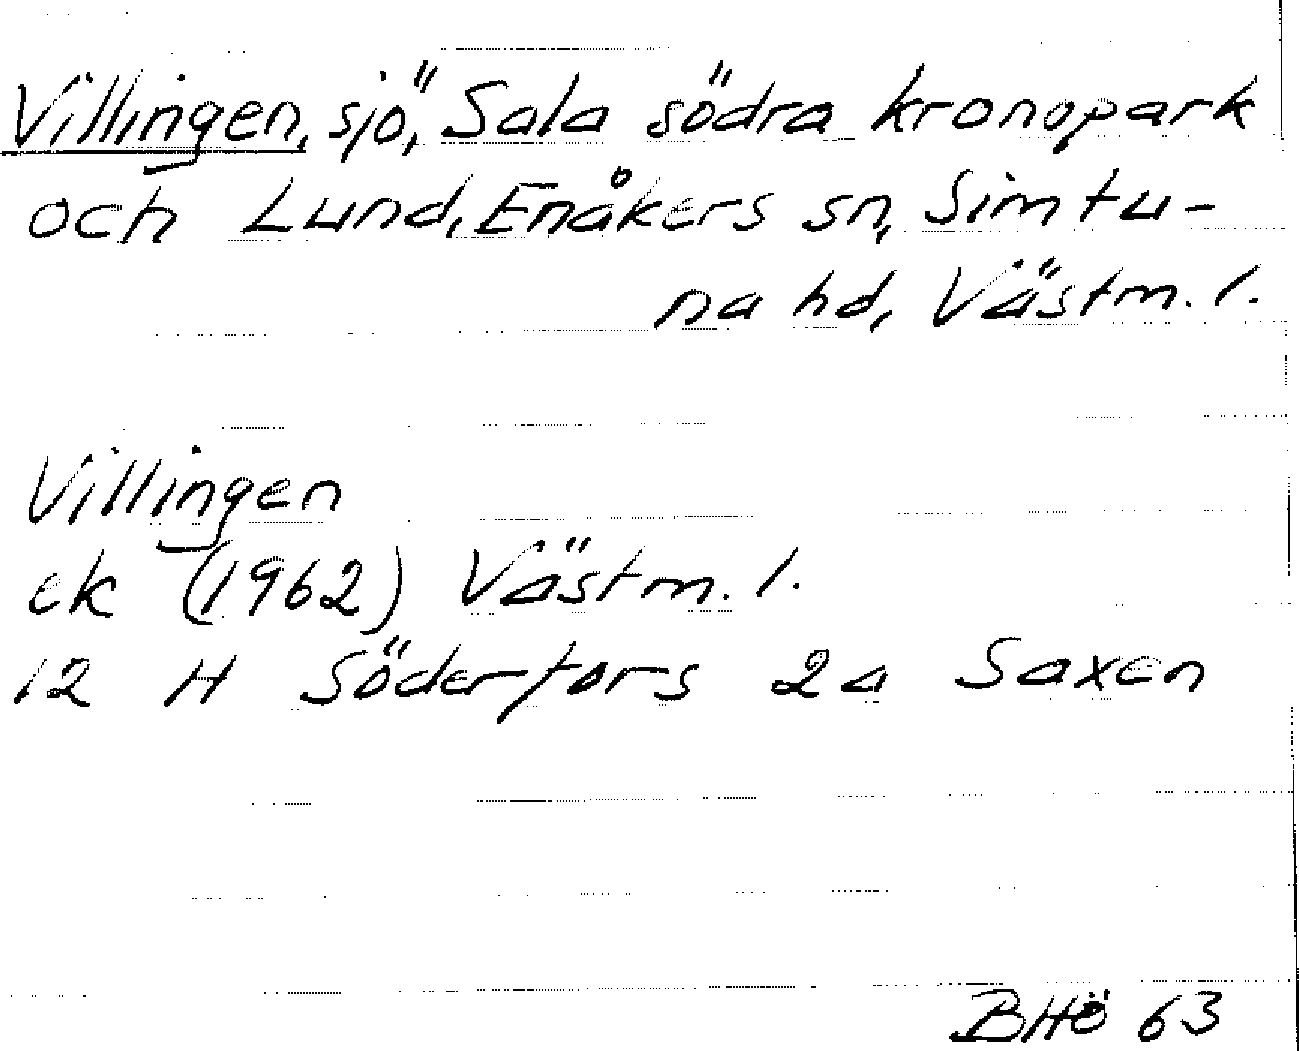 Villingen, sjö, Sala södra kronopark
och Lund, Enåkers sn, Simtu-
na hd, Västm. l.
Villingen
ek (1962) Västm. l.
12 H Söderfors 2a Saxen
BHö 63